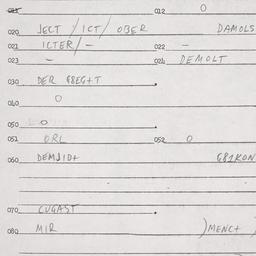 011 012 0
020 JECT / ICT / OBER DAMOLS
021 ICTER/ - 022 -
023 - 024 DEMOLT
030 DER G8EG+T
040 0
050 0
051 ORL 052 0
060 DEMJID+ G81KON
070 CUGAST
080 MIR )MENC+